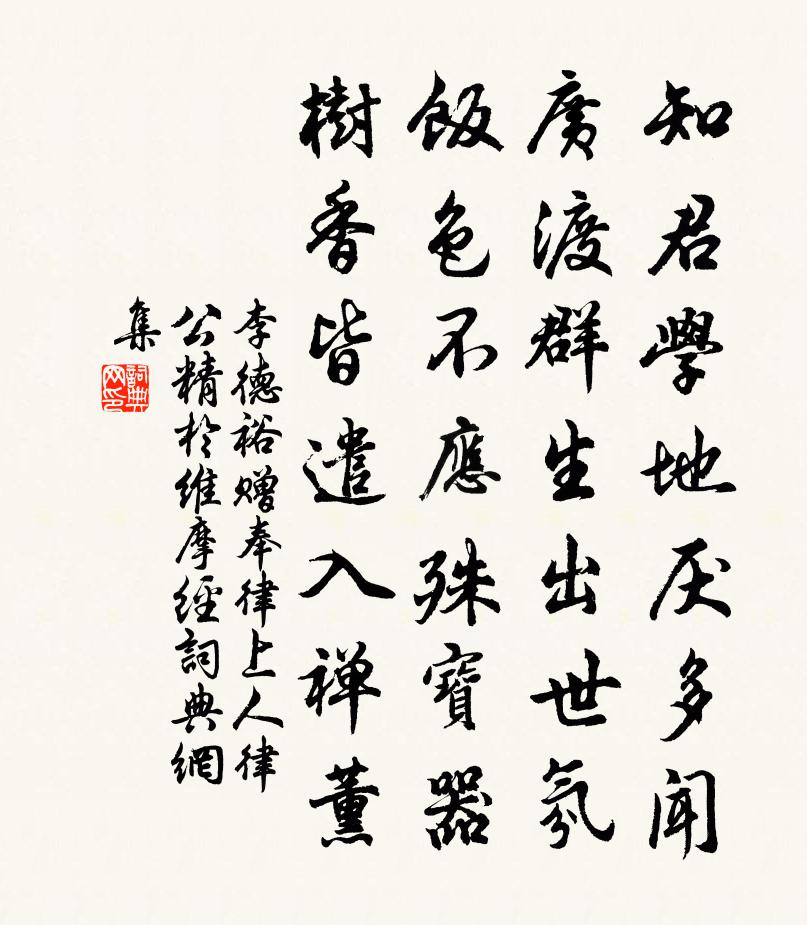 知君學地厌多闻
廣渡群生出世氛
飯色不應殊寶器
樹香皆遣入禅薰
李德裕赠奉律上人律
公精於维摩經詞典網
集
詞典网印